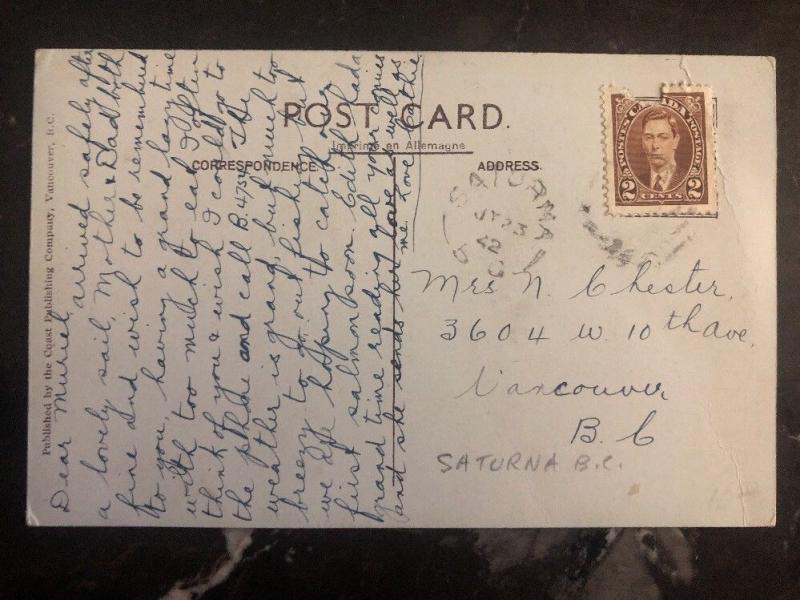 Published by the Coast Publishing Company, Vancouver, B.C.
POST CARD.
Imprimé en Allemagne
CORRESPONDENCE
ADDRESS
POSTES CANADA POSTAGE
2 CENTS 2
Dear Muriel, arrived safely after
a lovely sail, Mother & Dad both
fine and wish to be remembered
to you, having a grand lazy time
with too much to eat, I often
think of you & wish I could go to
the phone and call B. 4754 The
weather is grand, but much too
breezy to go out fishing but
we are hoping to catch our
first salmon soon. Edith had a
grand time reading all your
and she sends her love as well as
me Love
Mrs N. Chester,
3604 W. 10th Ave,
Vancouver
B. C
SATURNA B.C.